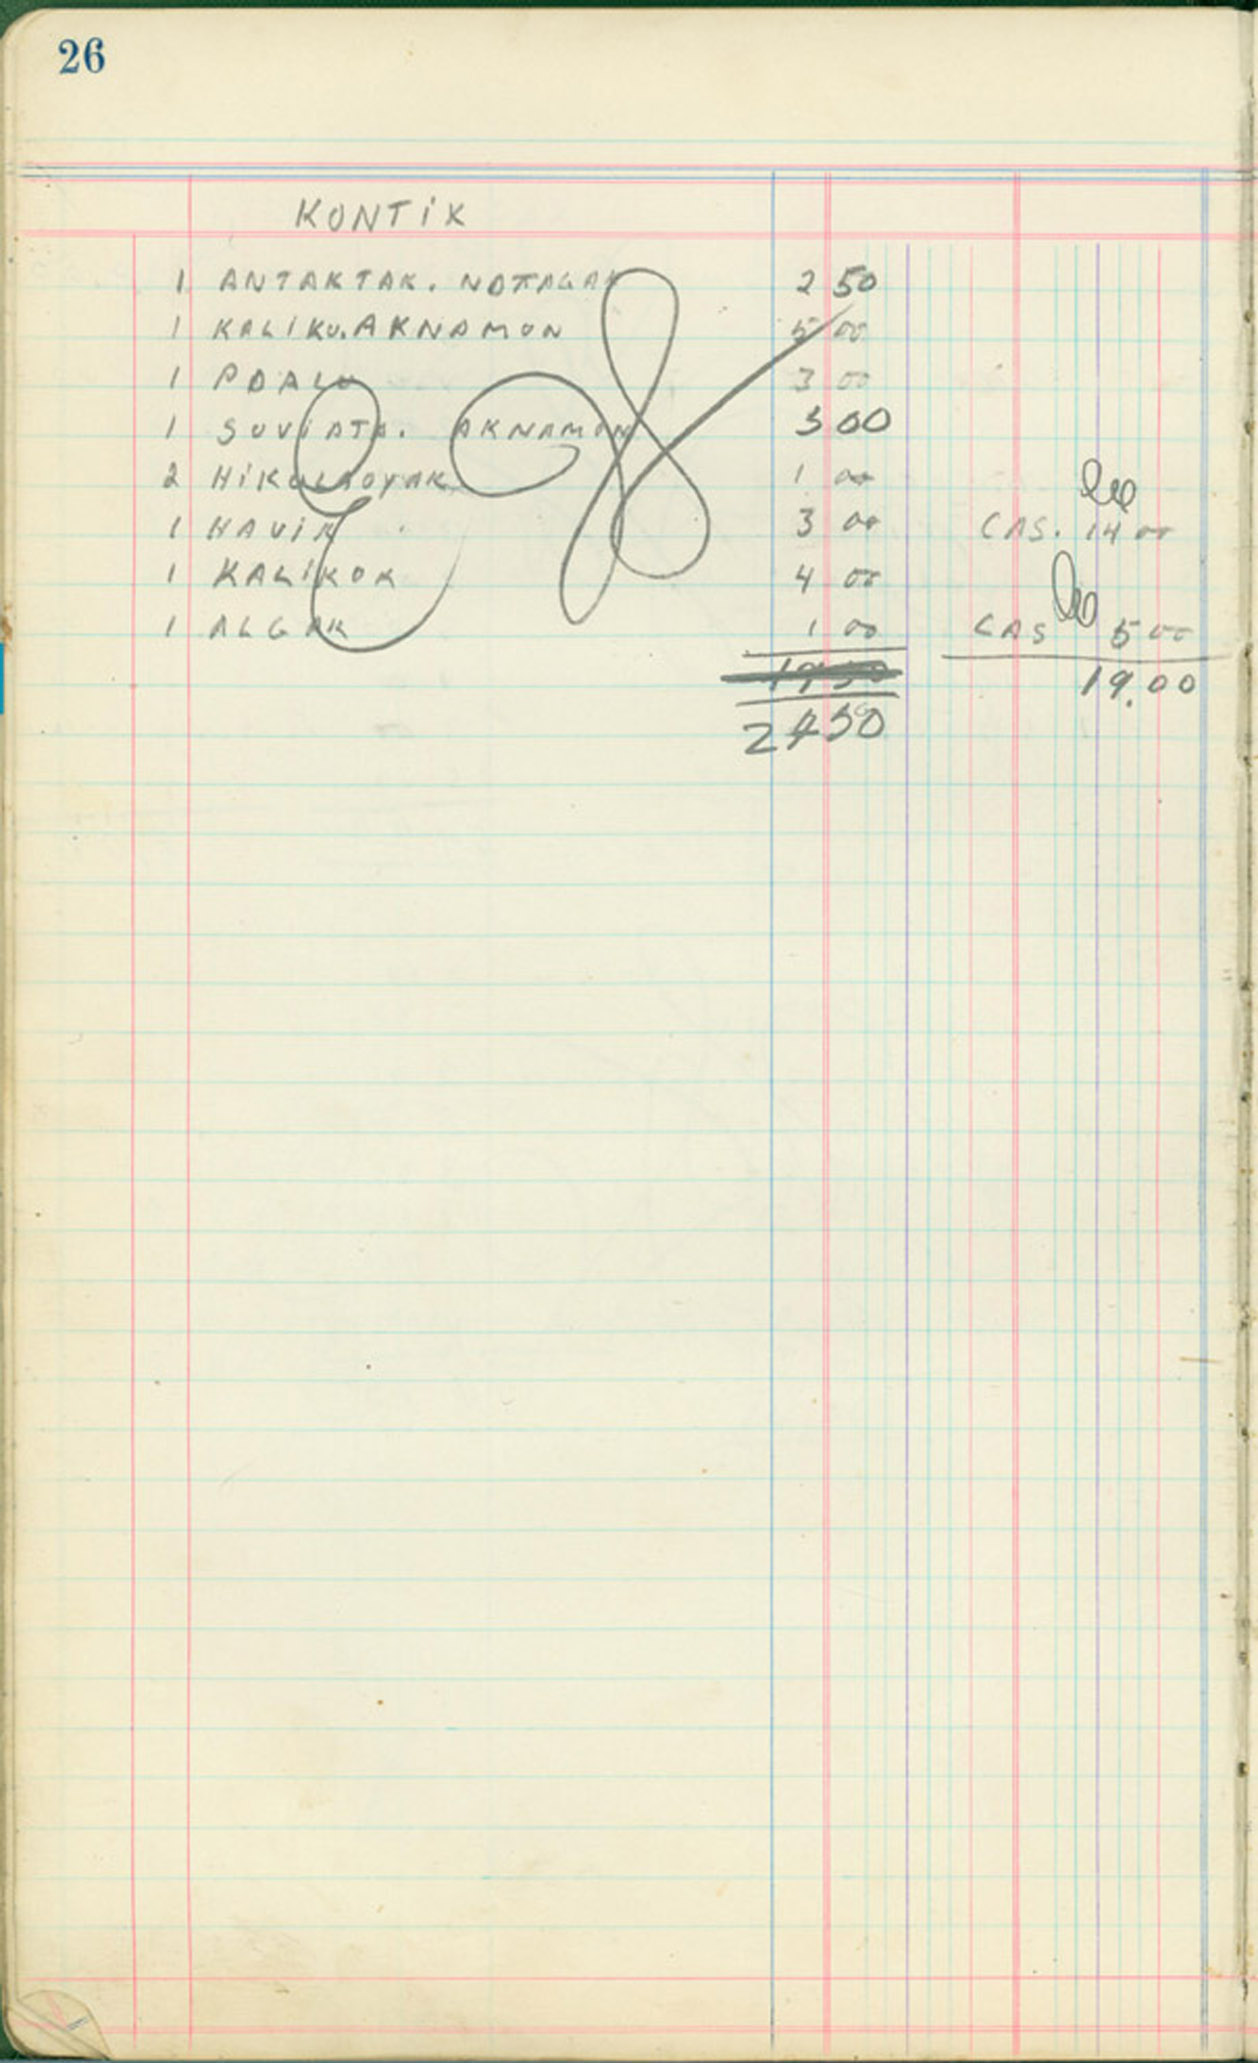 26
KONTIK
1 ANTAKTAK. NOTAGAK 2 50
1 KALIKU. AKNAMON 5 00
1 POALU 3 00
1 SUVIATO. AKNAMON 5 00
2 HIKULAOYAK 1 00
1 HAVIK 3 00 CAS. 14 00
1 KALIKOK 4 00
1 ALGAK 1 00 CAS 5 00
19 50 19.00
24 50